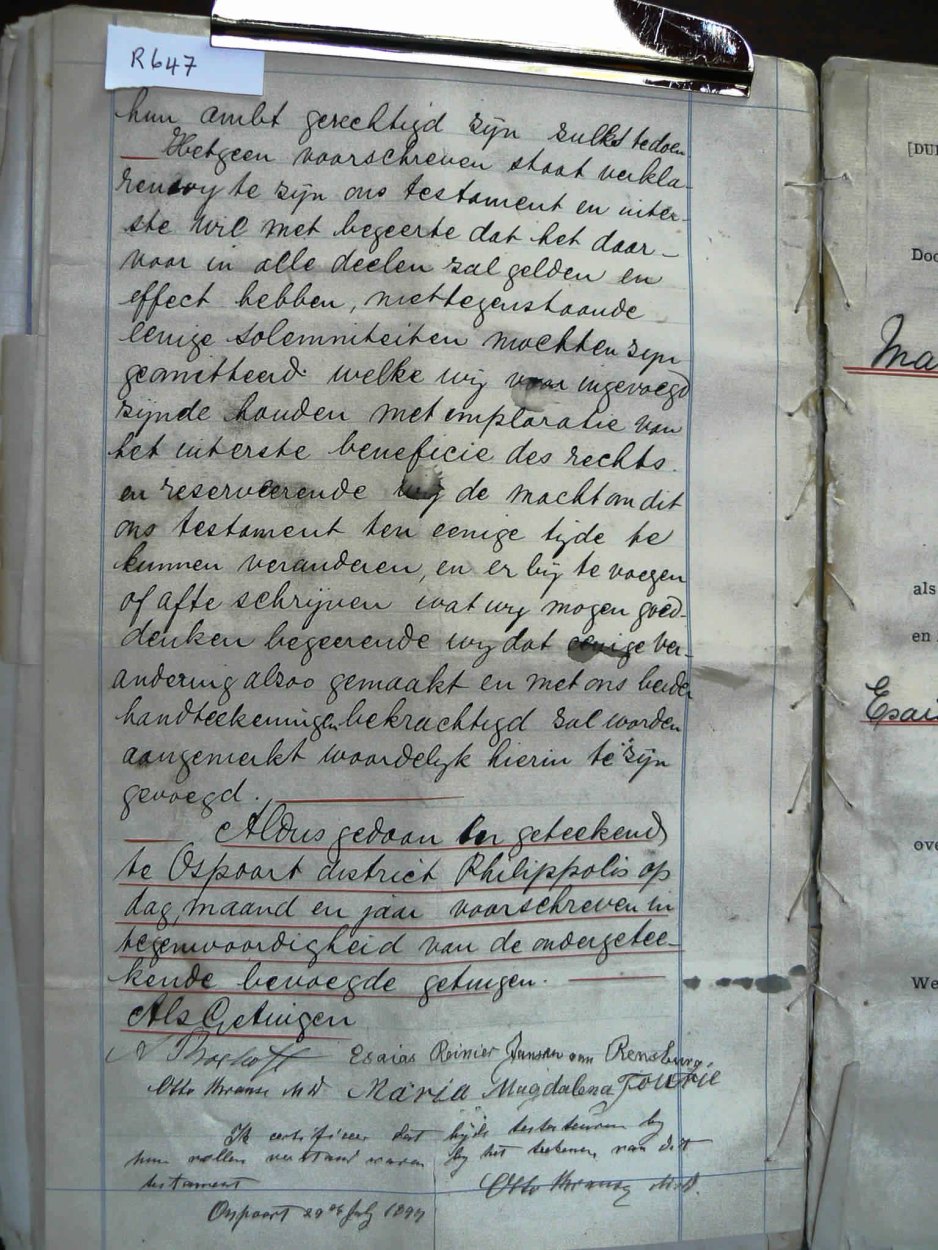 R647
hun ambt gerechtigd zijn zulks te doen
Hetgeen voorschreven staat verkla-
ren wy te zijn ons testament en uiter-
ste wil met begeerte dat het daar-
voor in alle deelen zal gelden en
effect hebben, niettegenstaande
eenige solemniteiten mochten zijn
geomitteerd welke wij voor ingevoegd
zijnde houden met imploratie van
het uiterste beneficie des rechts
en reserveerende wij de macht om dit
ons testament ten eenige tijde te
kunnen veranderen, en er bij te voegen
of afte schrijven wat wij mogen goed-
denken begeerende wij dat eenige ver-
andering alzoo gemaakt en met ons beider
handteekeningen bekrachtigd zal worden
aangemerkt woordelijk hierin te zijn
gevoegd.
Aldus gedaan en geteekend
te Ospoort district Philippolis op
dag, maand en jaar voorschreven in
tegenwoordigheid van de ondergetee-
kende bevoegde getuigen.
Als Getuigen
Esaias Reinier Jansen van Rensburg
Otto Krause M.D. Maria Magdalena Fourie
Ik certificeer dat bijde testateuren by
hun vollen verstand waren by het teekenen van dit
testament
Otto Krause M.D.
Ospoort 29 July
[DU
Doo
Ma
als
en
Esai
ove
We